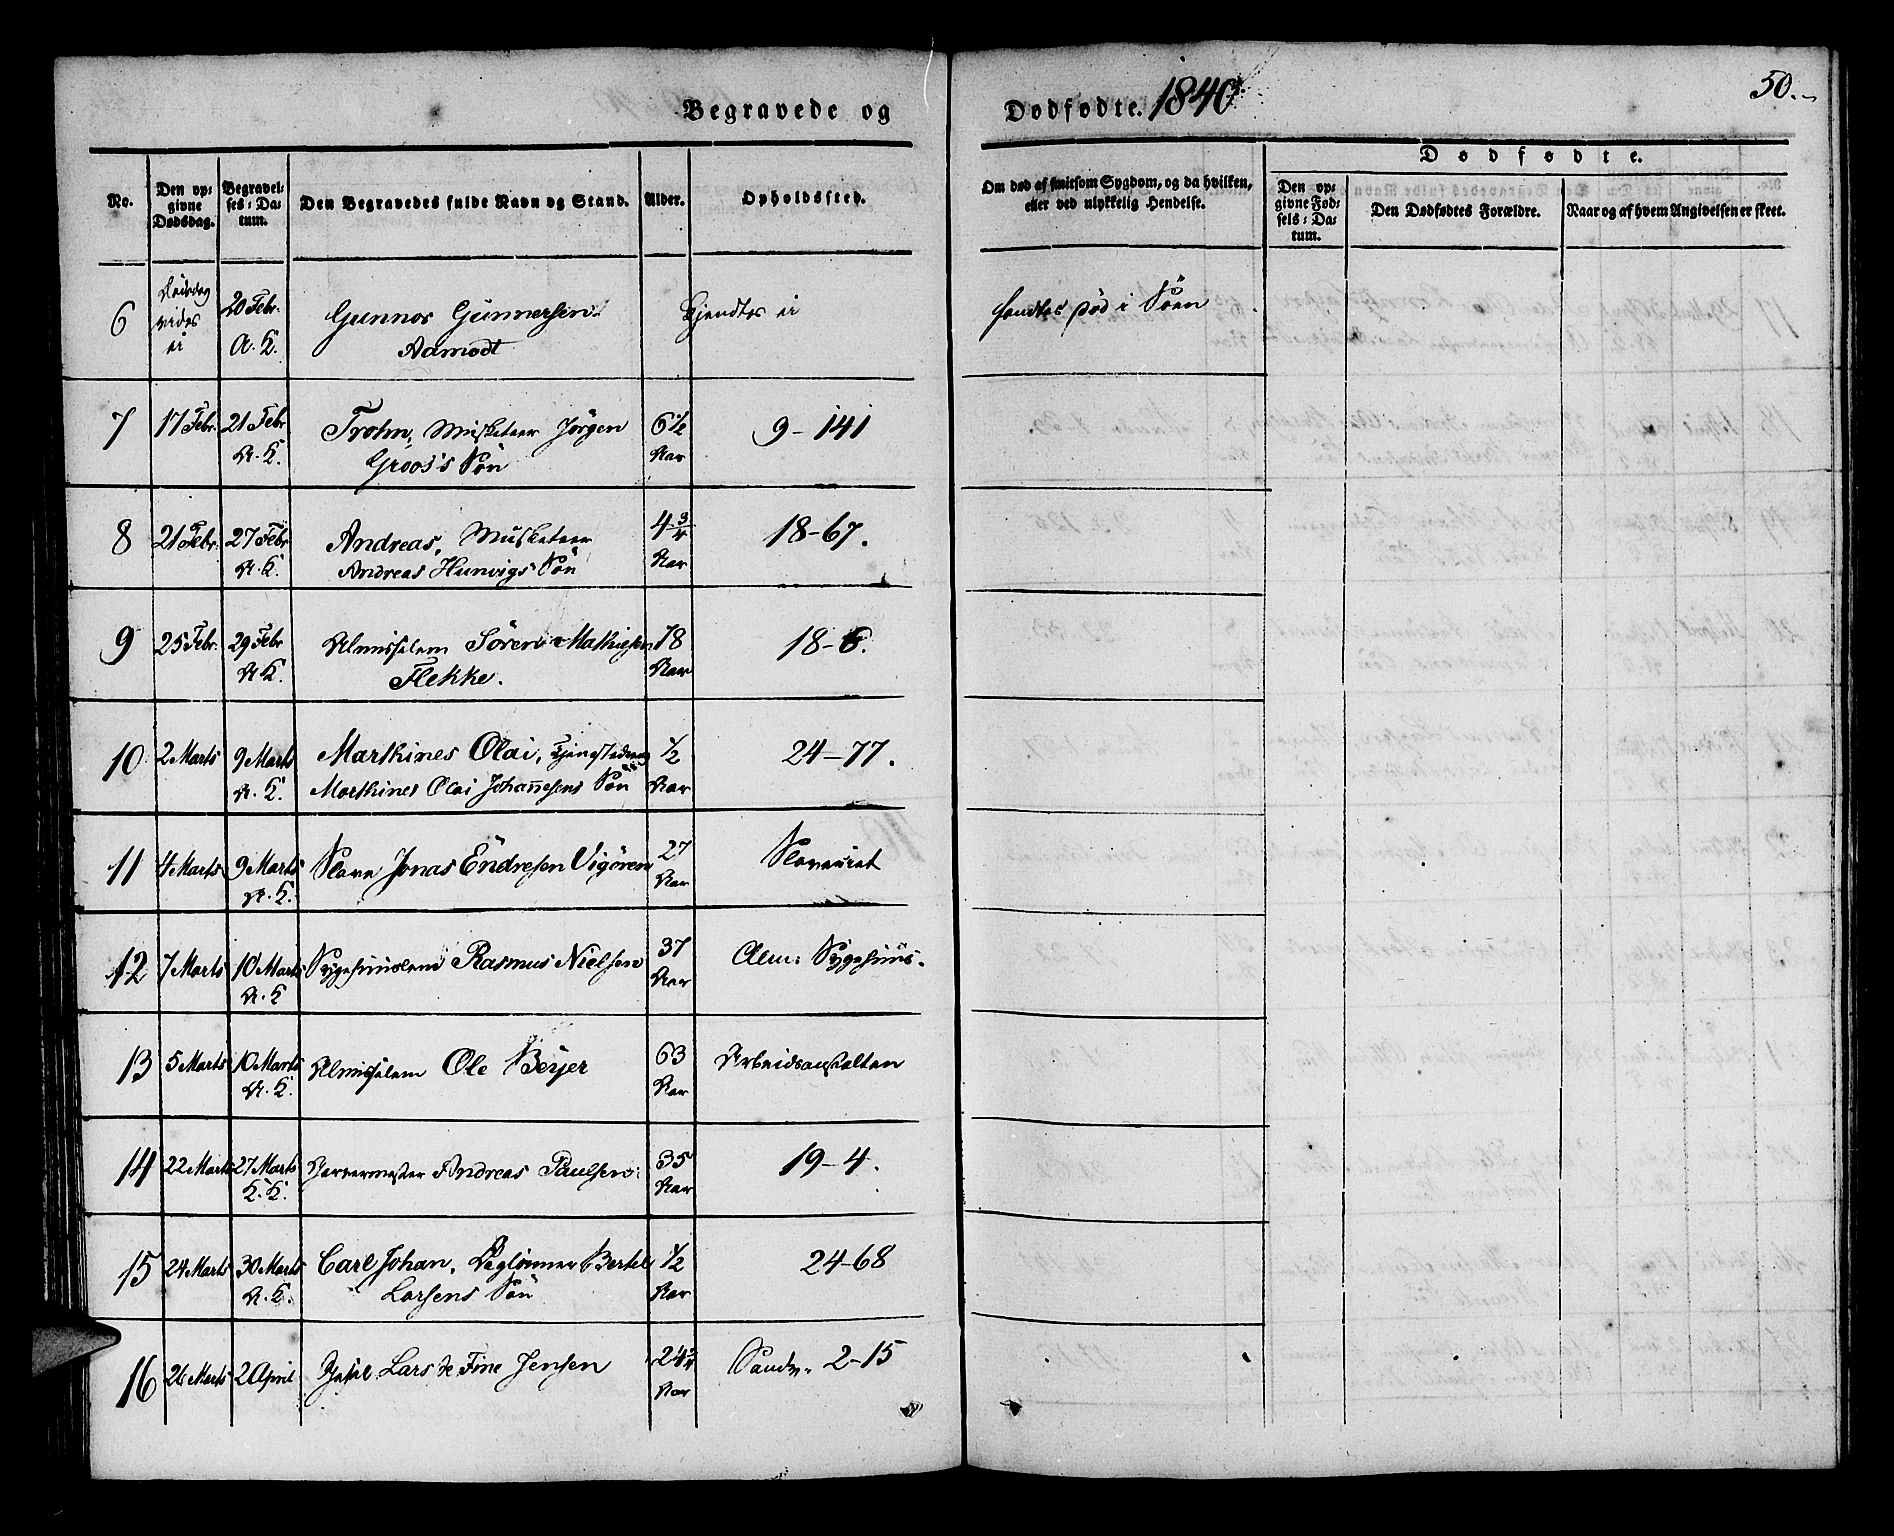 50.
Begravede og Dødfødte. 1840
No.
Den opgivne Dødsdag.
Begravelses-Datum.
Den Begravedes fulde Navn og Stand.
Alder.
Opholdssted.
Om død af smitsom Sygdom, og da hvilken, eller ved ulykkelig Hendelse.
Dødfødte.
Den opgivne Fødsels-Datum.
Den Dødfødtes Forældre.
Naar og af hvem Angivelsen er skeet.
6 Dødsdag vides ei 20 Febr. A.K. Gunnos Gunnersen Kjendtes ei fandtes død i Søen
Aamodt
7 17 Febr. 21 Febr. A.K. Trohn, Musketeer Jörgen 6½ Aar 9-141
Groos's Søn
8 21 Febr. 27 Febr. A.K. Andreas, Musketeer 4¾ Aar 18-67.
Andreas Hunvigs Søn
9 25 Febr. 29 Febr A.K. Almisselem Sören Mathiesen 78 Aar 18-6.
Flekke.
10 2 Marts 9 Marts A.K. Marthines Olai, 1/2 Aar 24-77.
Marthines Olai Johannesens Søn
11 4 Marts 9 Marts A.K. Slave Jonas Endresen Vigören 27 Aar Slaveriet
12 7 Marts 10 Marts A.K. Sygehuuslem Rasmus Nielsen 37 Aar Alm: Sygehuus.
13 5 Marts 10 Marts A.K. Almisselem Ole Beyer 63 Aar Arbeidsanstalten
14 22 Marts 27 Marts K.K. Garvermester Andreas Paulsen 35 Aar 19-4.
15 24 Marts 30 Marts A.K. Carl Johan, Daglönner Bertel 1/2 Aar 24-68
Larsens Søn
16 26 Marts 2 April Lars de Fine Jensen 24 Aar Sandv. 2-15